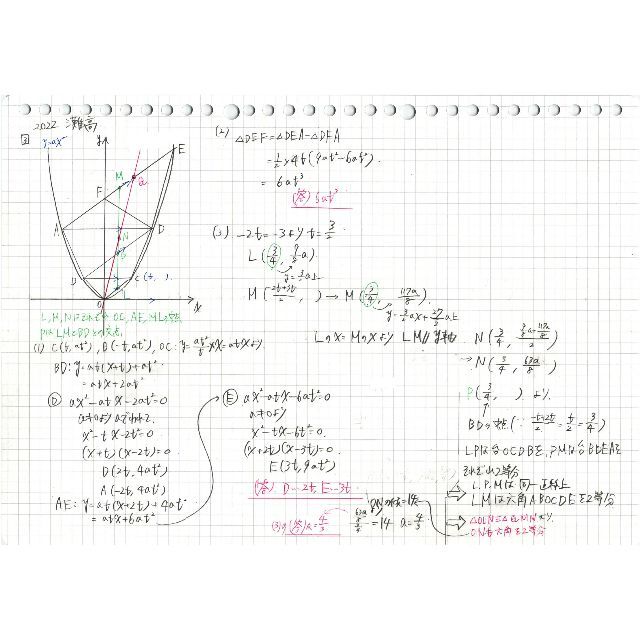 2022 灘高
③
y=ax²
y
E
M
Q
F
A
D
N
P
B
C(t, ).
L
O
x
L, M, NはそれぞれOC, AE, MLの中点
PはLMとBDとの交点.
(1) C(t, at²), B(-t, at²), OC: y=at²/t ×x=atxより
BD: y=at(x+t)+at²
=atx+2at²
Ⓓ ax²-atx-2at²=0
a≠0よりaでわれて.
x²-tx-2t²=0
(x+t)(x-2t)=0
D(2t, 4at²)
A(-2t, 4at²)
AE: y=at(x+2t)+4at²
=atx+6at²
Ⓔ ax²-atx-6at²=0
a≠0より
x²-tx-6t²=0.
(x+2t)(x-3t)=0
E(3t, 9at²)
(答) D…2t, E…3t.
(2) △DEF=△DEA-△DFA
=1/2×4t(9at²-6at²).
=6at³
(答) 6at³
(3) -2t=-3より t=3/2
L(3/4, 9/8a)
y=3/2a上
M( , ) → M(3/4, 117a/8)
y=3/2ax+27/2a上
Lのx=Mのxより LM∥y軸
N(3/4, )
→N(3/4, 63a/8)
P(3/4, ) より
BDの中点(∵ (-t+2t)/2=t/2=3/4)
LPは台OCDBを, PMは台BDEAを
それぞれ2等分
⇒ L, P, Mは同一直線上
LMは六角ABOCDEを2等分
⇒ △OLN=△QMNより.
ONも六角を2等分
ONの傾き=14
=14 a=4/3
(3)の(答)a=4/3